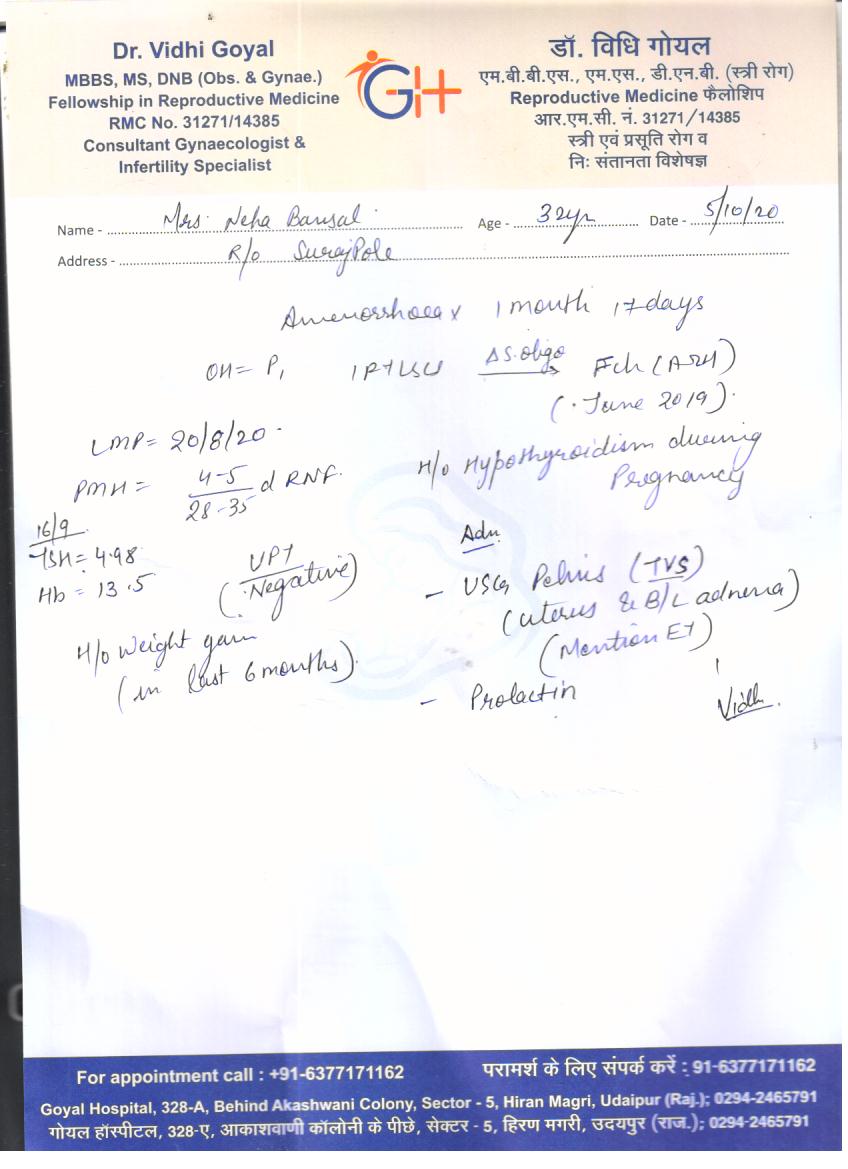 Dr. Vidhi Goyal
MBBS, MS, DNB (Obs. & Gynae.)
Fellowship in Reproductive Medicine
RMC No. 31271/14385
Consultant Gynaecologist &
Infertility Specialist
GH
डॉ. विधि गोयल
एम.बी.बी.एस., एम.एस., डी.एन.बी. (स्त्री रोग)
Reproductive Medicine फैलोशिप
आर.एम.सी. नं. 31271/14385
स्त्री एवं प्रसूति रोग व
निः संतानता विशेषज्ञ
Name - Mrs. Neha Bansal Age - 32yr Date - 5/10/20
Address - R/o SurajPole
Amenorrhoea x 1 month 17 days
OH = P1 1 P+ LSCS Δ S.oligo → Fch (A&H)
(June 2019).
LMP = 20/8/20.
H/o Hypothyroidism during
Pregnancy
PMH = 4-5/28-35 d RNF.
16/9
TSH = 4.98
Hb = 13.5
UPT
(Negative)
H/o Weight gain
(in last 6 months).
Adv.
- USG Pelvis (TVS)
(uterus & B/L adnexa)
(Mention ET)
- Prolactin
Vidhi.
For appointment call : +91-6377171162
परामर्श के लिए संपर्क करें : 91-6377171162
Goyal Hospital, 328-A, Behind Akashwani Colony, Sector - 5, Hiran Magri, Udaipur (Raj.); 0294-2465791
गोयल हॉस्पीटल, 328-ए, आकाशवाणी कॉलोनी के पीछे, सेक्टर - 5, हिरण मगरी, उदयपुर (राज.); 0294-2465791